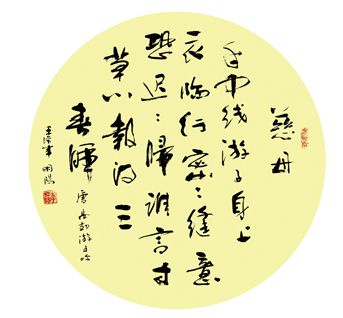 慈母
手中线游子身上
衣临行密々缝意
恐迟々归谁言寸
草心报得三
春晖
唐孟郊游子吟